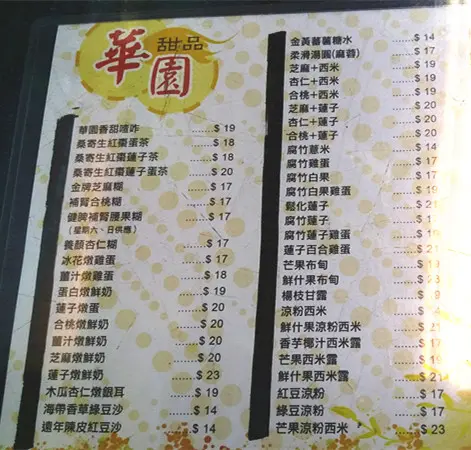 華園
甜品
華園香甜喳咋 ......$ 19
桑寄生紅棗蛋茶 ......$ 18
桑寄生紅棗蓮子茶 ......$ 18
桑寄生紅棗蓮子蛋茶 ......$ 20
金牌芝麻糊 ......$ 17
補腎合桃糊 ......$ 17
健脾補腎腰果糊 ......$ 17
(星期六、日供應)
養顏杏仁糊 ......$ 17
冰花燉雞蛋 ......$ 17
薑汁燉雞蛋 ......$ 18
蛋白燉鮮奶 ......$ 19
蓮子燉蛋 ......$ 20
合桃燉鮮奶 ......$ 20
薑汁燉鮮奶 ......$ 20
芝麻燉鮮奶 ......$ 20
蓮子燉鮮奶 ......$ 23
木瓜杏仁燉銀耳 ......$ 19
海帶香草綠豆沙 ......$ 14
遠年陳皮紅豆沙 ......$ 14
金黃蕃薯糖水 ......$ 14
柔滑湯圓(麻蓉) ......$ 17
芝麻+西米 ......$ 19
杏仁+西米 ......$ 19
合桃+西米 ......$ 19
芝麻+蓮子 ......$ 20
杏仁+蓮子 ......$ 20
合桃+蓮子 ......$ 20
腐竹薏米 ......$ 14
腐竹雞蛋 ......$ 17
腐竹白果 ......$ 17
腐竹白果雞蛋 ......$ 19
鬆化蓮子 ......$ 21
腐竹蓮子 ......$
腐竹蓮子雞蛋 ......$ 21
蓮子百合雞蛋 ......$ 21
芒果布甸 ......$
鮮什果布甸 ......$
楊枝甘露 ......$
涼粉西米 ......$
鮮什果涼粉西米 ......$ 21
香芋椰汁西米露 ......$ 17
芒果西米露 ......$ 19
鮮什果西米露 ......$ 21
紅豆涼粉 ......$ 17
綠豆涼粉 ......$ 17
芒果涼粉西米 ......$ 23